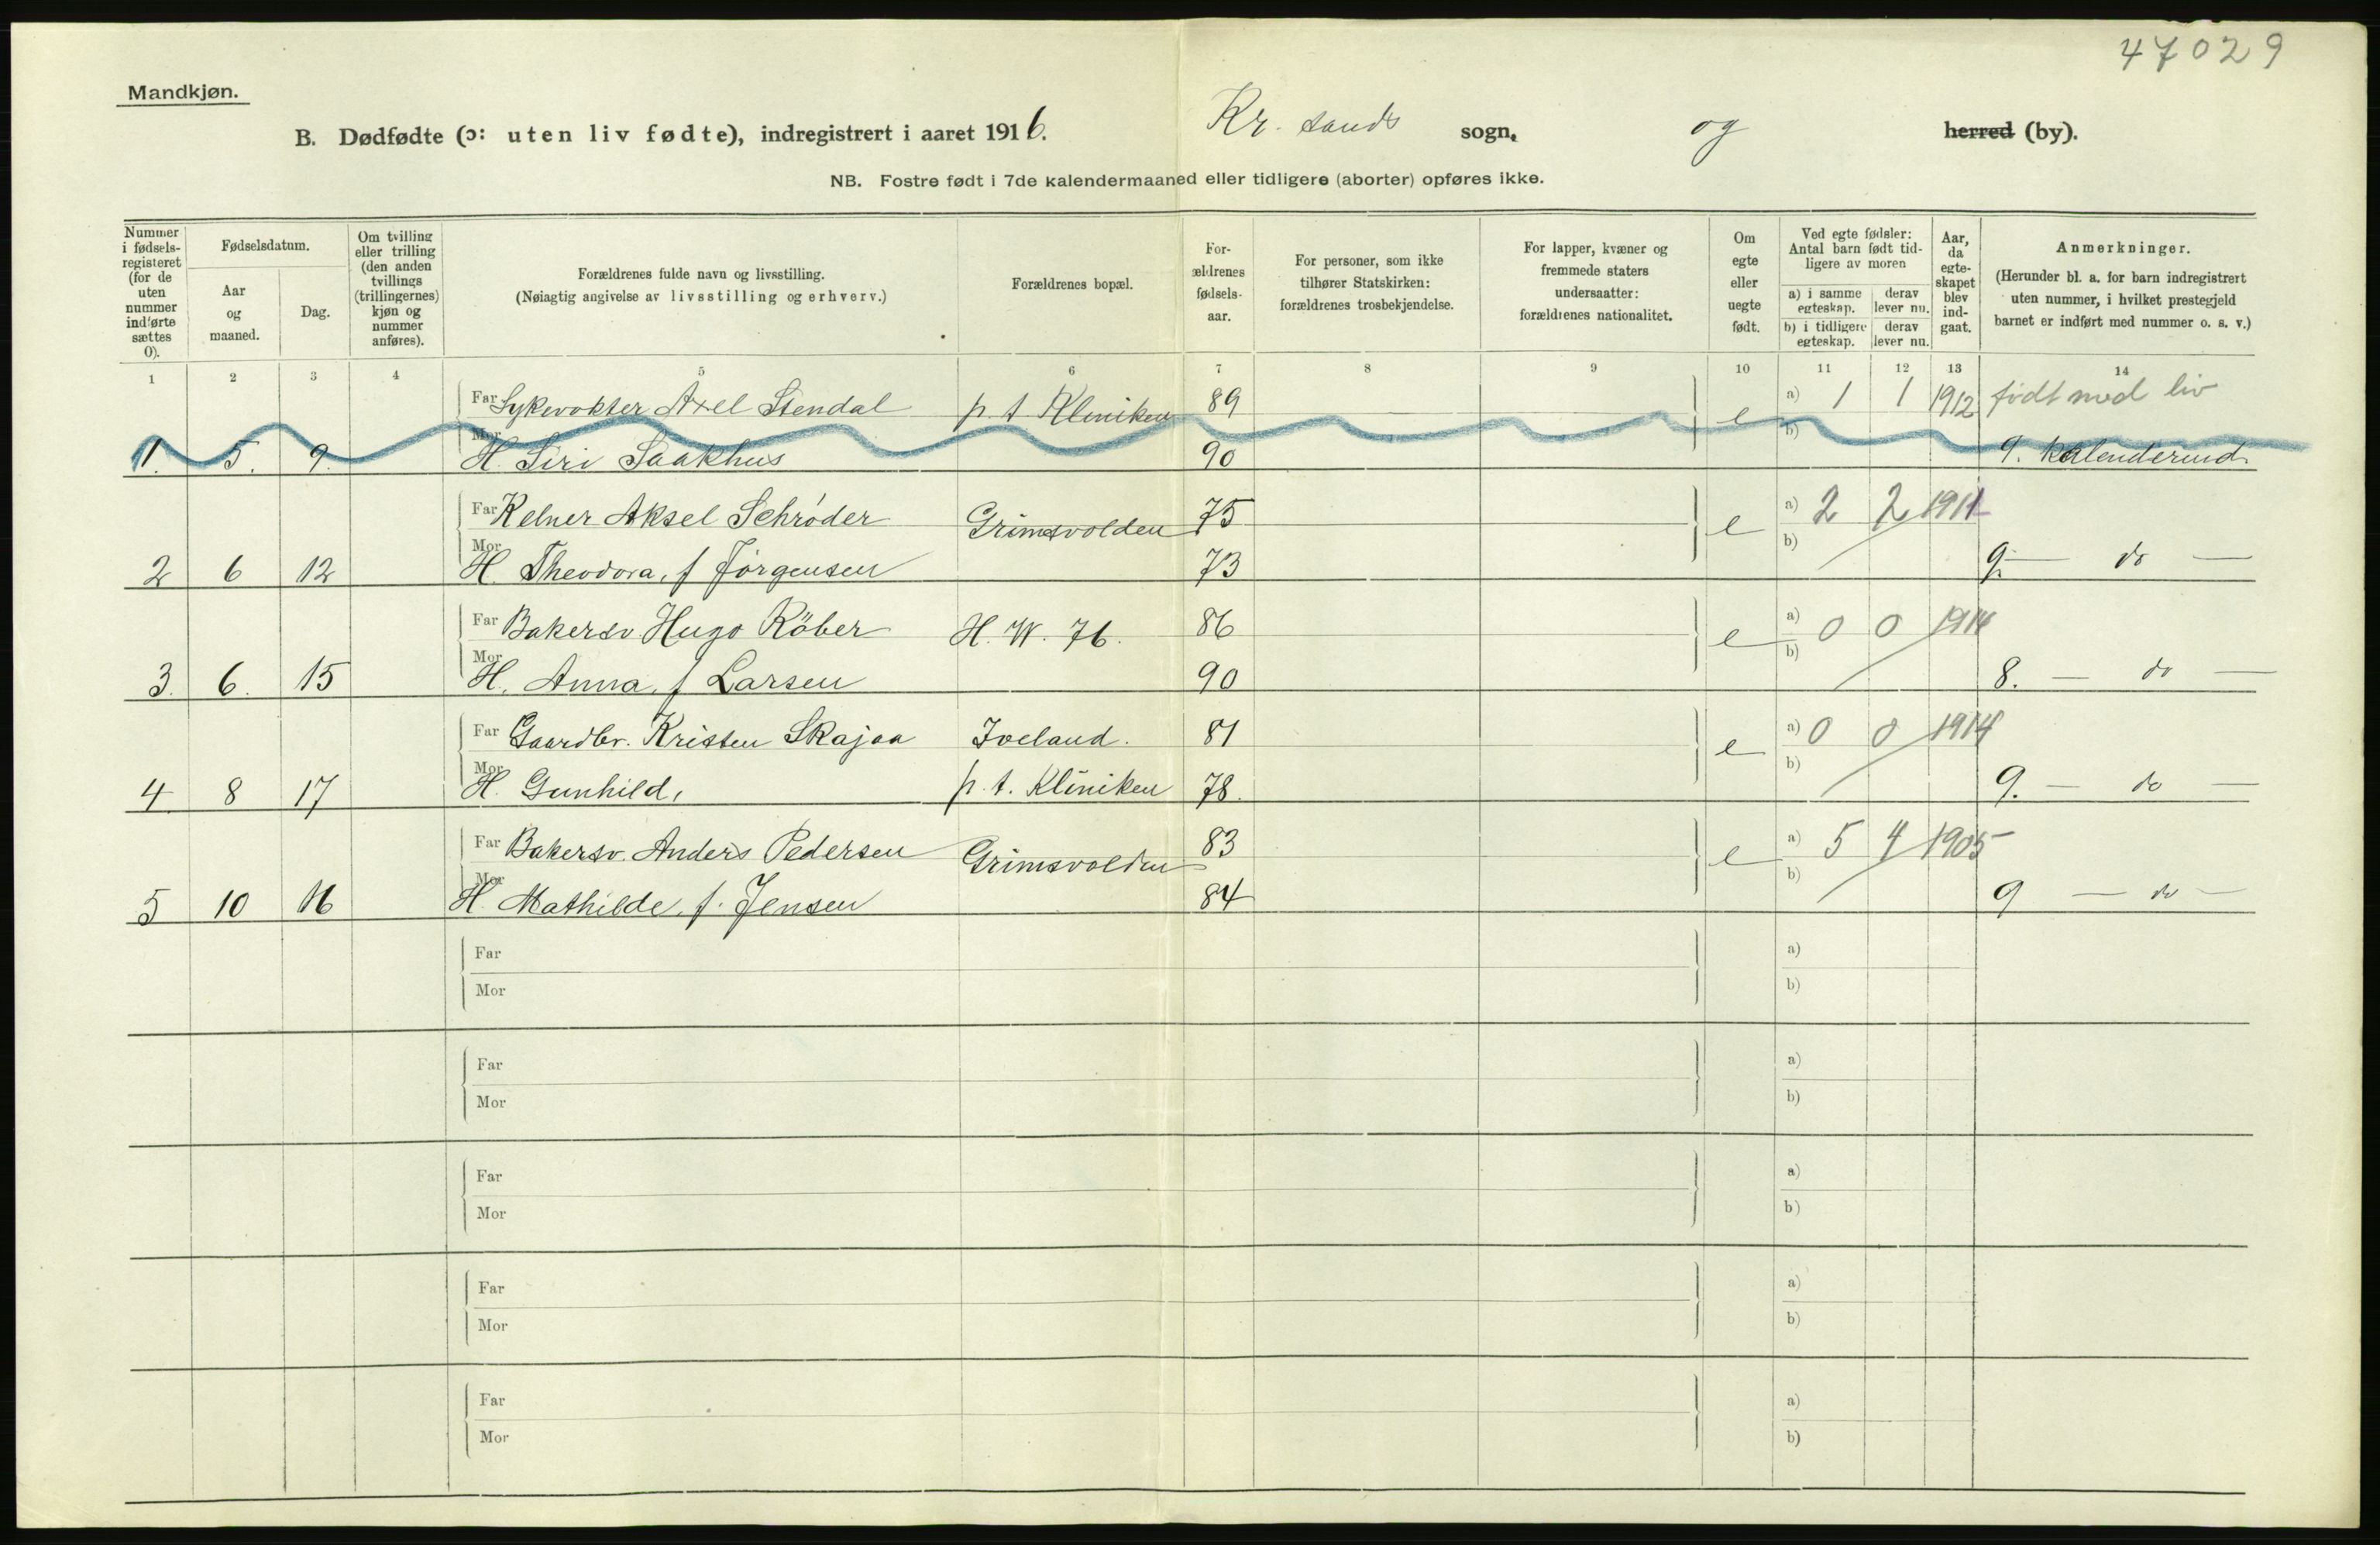 47029
Mandkjøn.
B. Dødfødte (ɔ: uten liv fødte), indregistrert i aaret 1916. Kr. sands sogn, og herred (by).
NB. Fostre født i 7de kalendermaaned eller tidligere (aborter) opføres ikke.
Nummer i fødsels-registeret (for de uten nummer indførte sættes 0).
Fødselsdatum.
Aar og maaned.
Dag.
Om tvilling eller trilling (den anden tvillings (trillingernes) kjøn og nummer anføres).
Forældrenes fulde navn og livsstilling.
(Nøiagtig angivelse av livsstilling og erhverv.)
Forældrenes bopæl.
For-ældrenes fødsels-aar.
For personer, som ikke tilhører Statskirken: forældrenes trosbekjendelse.
For lapper, kvæner og fremmede staters undersaatter: forældrenes nationalitet.
Om egte eller uegte født.
Ved egte fødsler: Antal barn født tid-ligere av moren
a) i samme egteskap. derav lever nu.
b) i tidligere egteskap. derav lever nu.
Aar, da egte-skapet blev ind-gaat.
Anmerkninger.
(Herunder bl. a. for barn indregistrert uten nummer, i hvilket prestegjeld barnet er indført med nummer o. s. v.)
1 2 3 4 5 6 7 8 9 10 11 12 13 14
Far Sykevokter Axel Stendal p. t. Kliniken 89 e a) 1 1 1912 født med liv
1. 5. 9. Mor H. Siri Saakhus 90 b) 9. kalendermd.
Far Kelner Aksel Schrøder Grimsvolden 75 e a) 2 2 1911
2 6 12 Mor H. Theodora, f Jørgensen 73 b) 9. — do —
Far Bakersv. Hugo Röber H. W. 76. 86 e a) 0 0 1914
3. 6. 15 Mor H. Anna, f Larsen 90 b) 8. — do —
Far Gaardbr. Kristen Skajaa Iveland. 81 e a) 0 0 1914
4. 8 17 Mor H. Gunhild, p. t. Kliniken 78. b) 9. — do —
Far Bakersv. Anders Pedersen Grimsvolden 83 e a) 5 4 1905
5 10 16 Mor H. Mathilde, f. Jensen 84 b) 9 — do —
Far a)
Mor b)
Far a)
Mor b)
Far a)
Mor b)
Far a)
Mor b)
Far a)
Mor b)